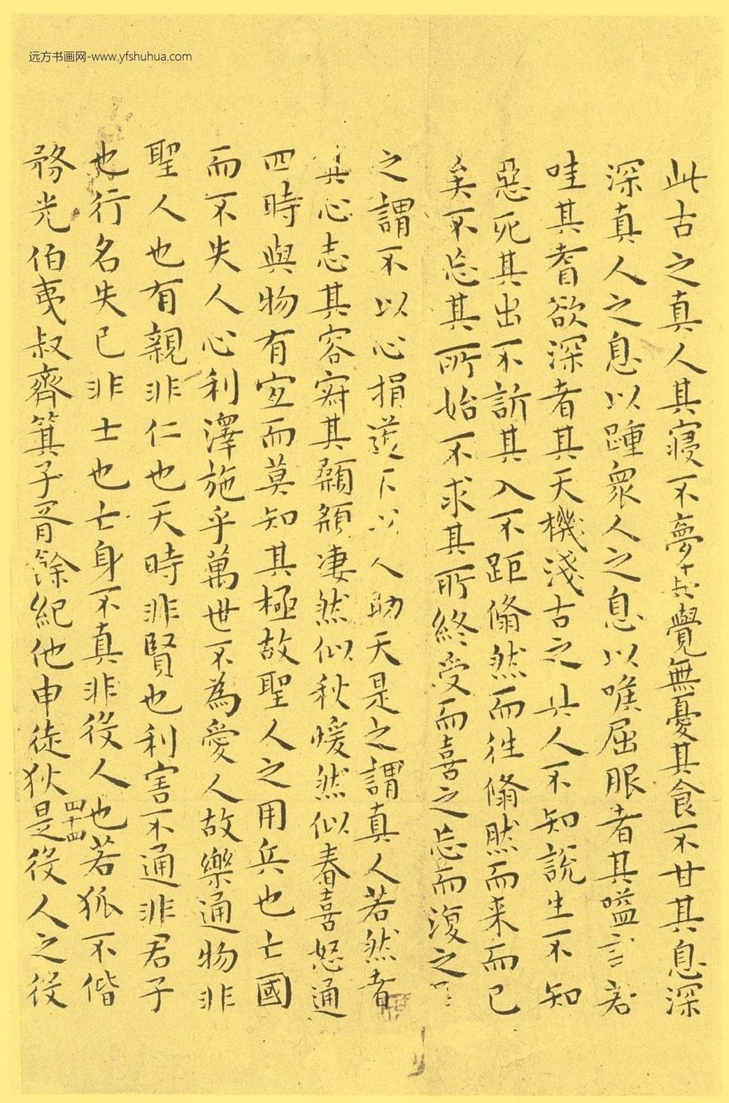 远方书画网-www.yfshuhua.com
此古之真人其寢不夢其覺無憂其食不甘其息深
深真人之息以踵衆人之息以喉屈服者其嗌言若
哇其耆欲深者其天機淺古之真人不知說生不知
惡死其出不訢其入不距翛然而往翛然而来而已
矣不忘其所始不求其所終受而喜之忘而復之
之謂不以心捐道不以人助天是之謂真人若然者
其心志其容寂其顙頯凄然似秋煖然似春喜怒通
四時與物有宜而莫知其極故聖人之用兵也亡國
而不失人心利澤施乎萬世不為愛人故樂通物非
聖人也有親非仁也天時非賢也利害不通非君子
也行名失己非士也亡身不真非役人也若狐不偕
務光伯夷叔齊箕子胥餘紀他申徒狄是役人之役
四十四